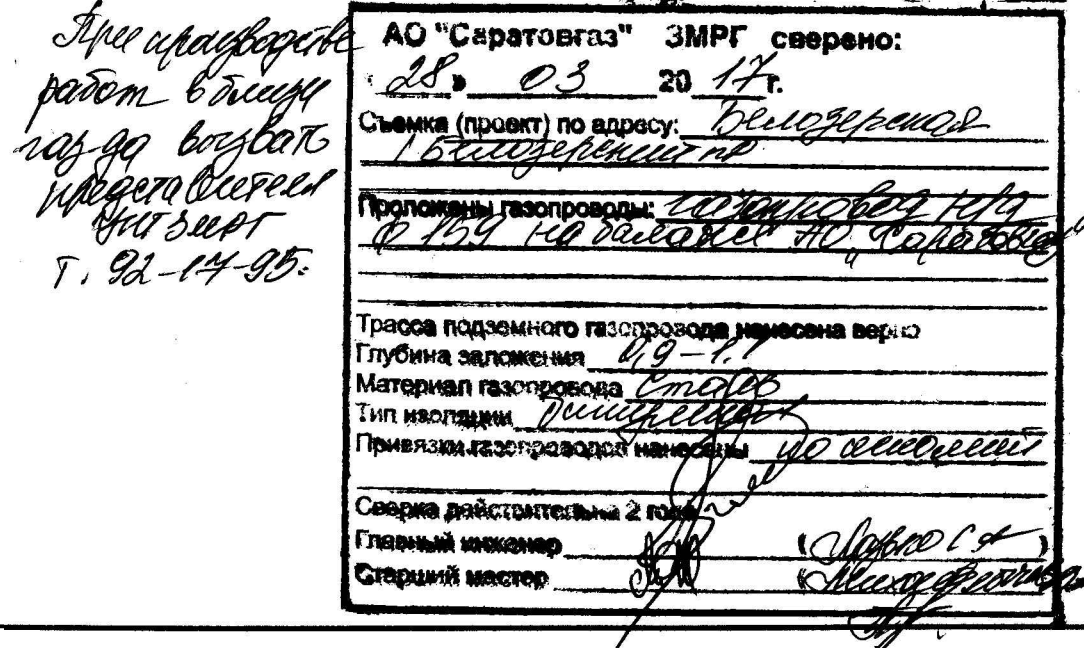 При производстве
работ вблизи
газ-да вызвать
представителя
т. 92-17-95.
АО "Саратовгаз" ЗМРГ сверено:
"28" 03 2017г.
Съемка (проект) по адресу: Белозерская
1 Белозерский пр
Проложены газопроводы: газопровод н/д
ф 159 на балансе АО "Саратовгаз"
Трасса подземного газопровода нанесена верно
Глубина заложения 0,9-1.1
Материал газопровода Сталь
Тип изоляции
Привязки газопроводов нанесены по
Сверка действительна 2 года
Главный инженер
Старший мастер